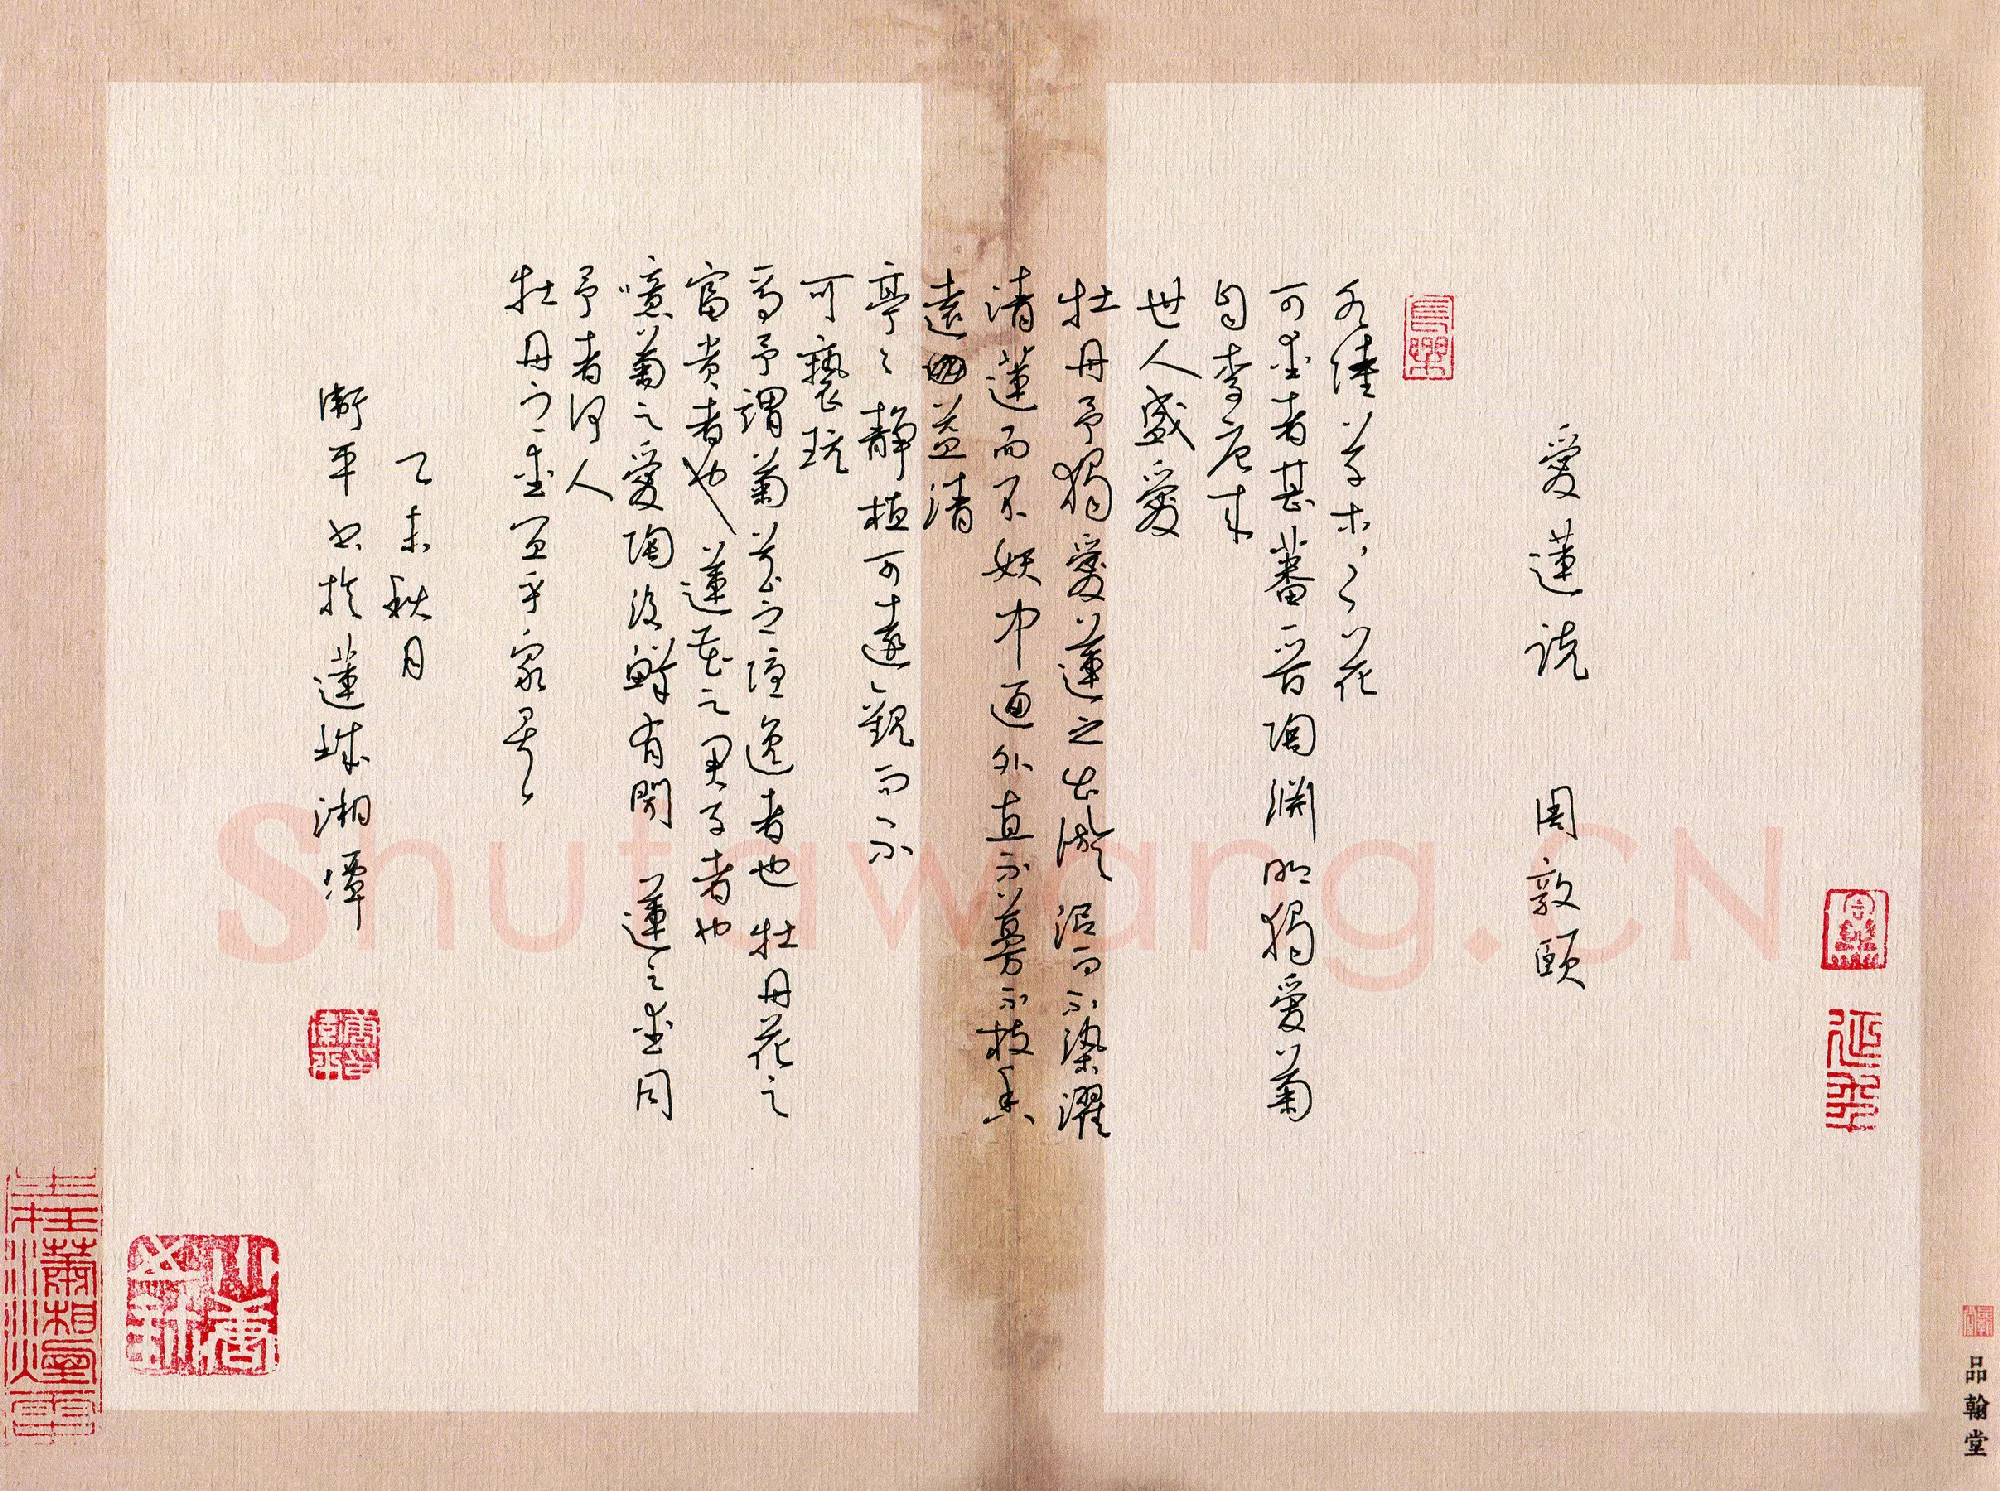 愛蓮說 周敦頤
水陸草木之花
可愛者甚蕃晉陶渊明獨愛菊
自李唐来
世人盛愛
牡丹予獨愛蓮之出淤泥而不染濯
清蓮而不妖中通外直不蔓不枝香
遠益清
亭亭静植可遠觀而不
可褻玩
焉予謂菊花之隱逸者也牡丹花之
富贵者也蓮花之君子者也
噫菊之愛陶後鮮有聞蓮之愛同
予者何人
牡丹之愛宜乎眾矣
乙未秋月
衛平书於蓮城湘潭
品翰堂
Shufawang.CN